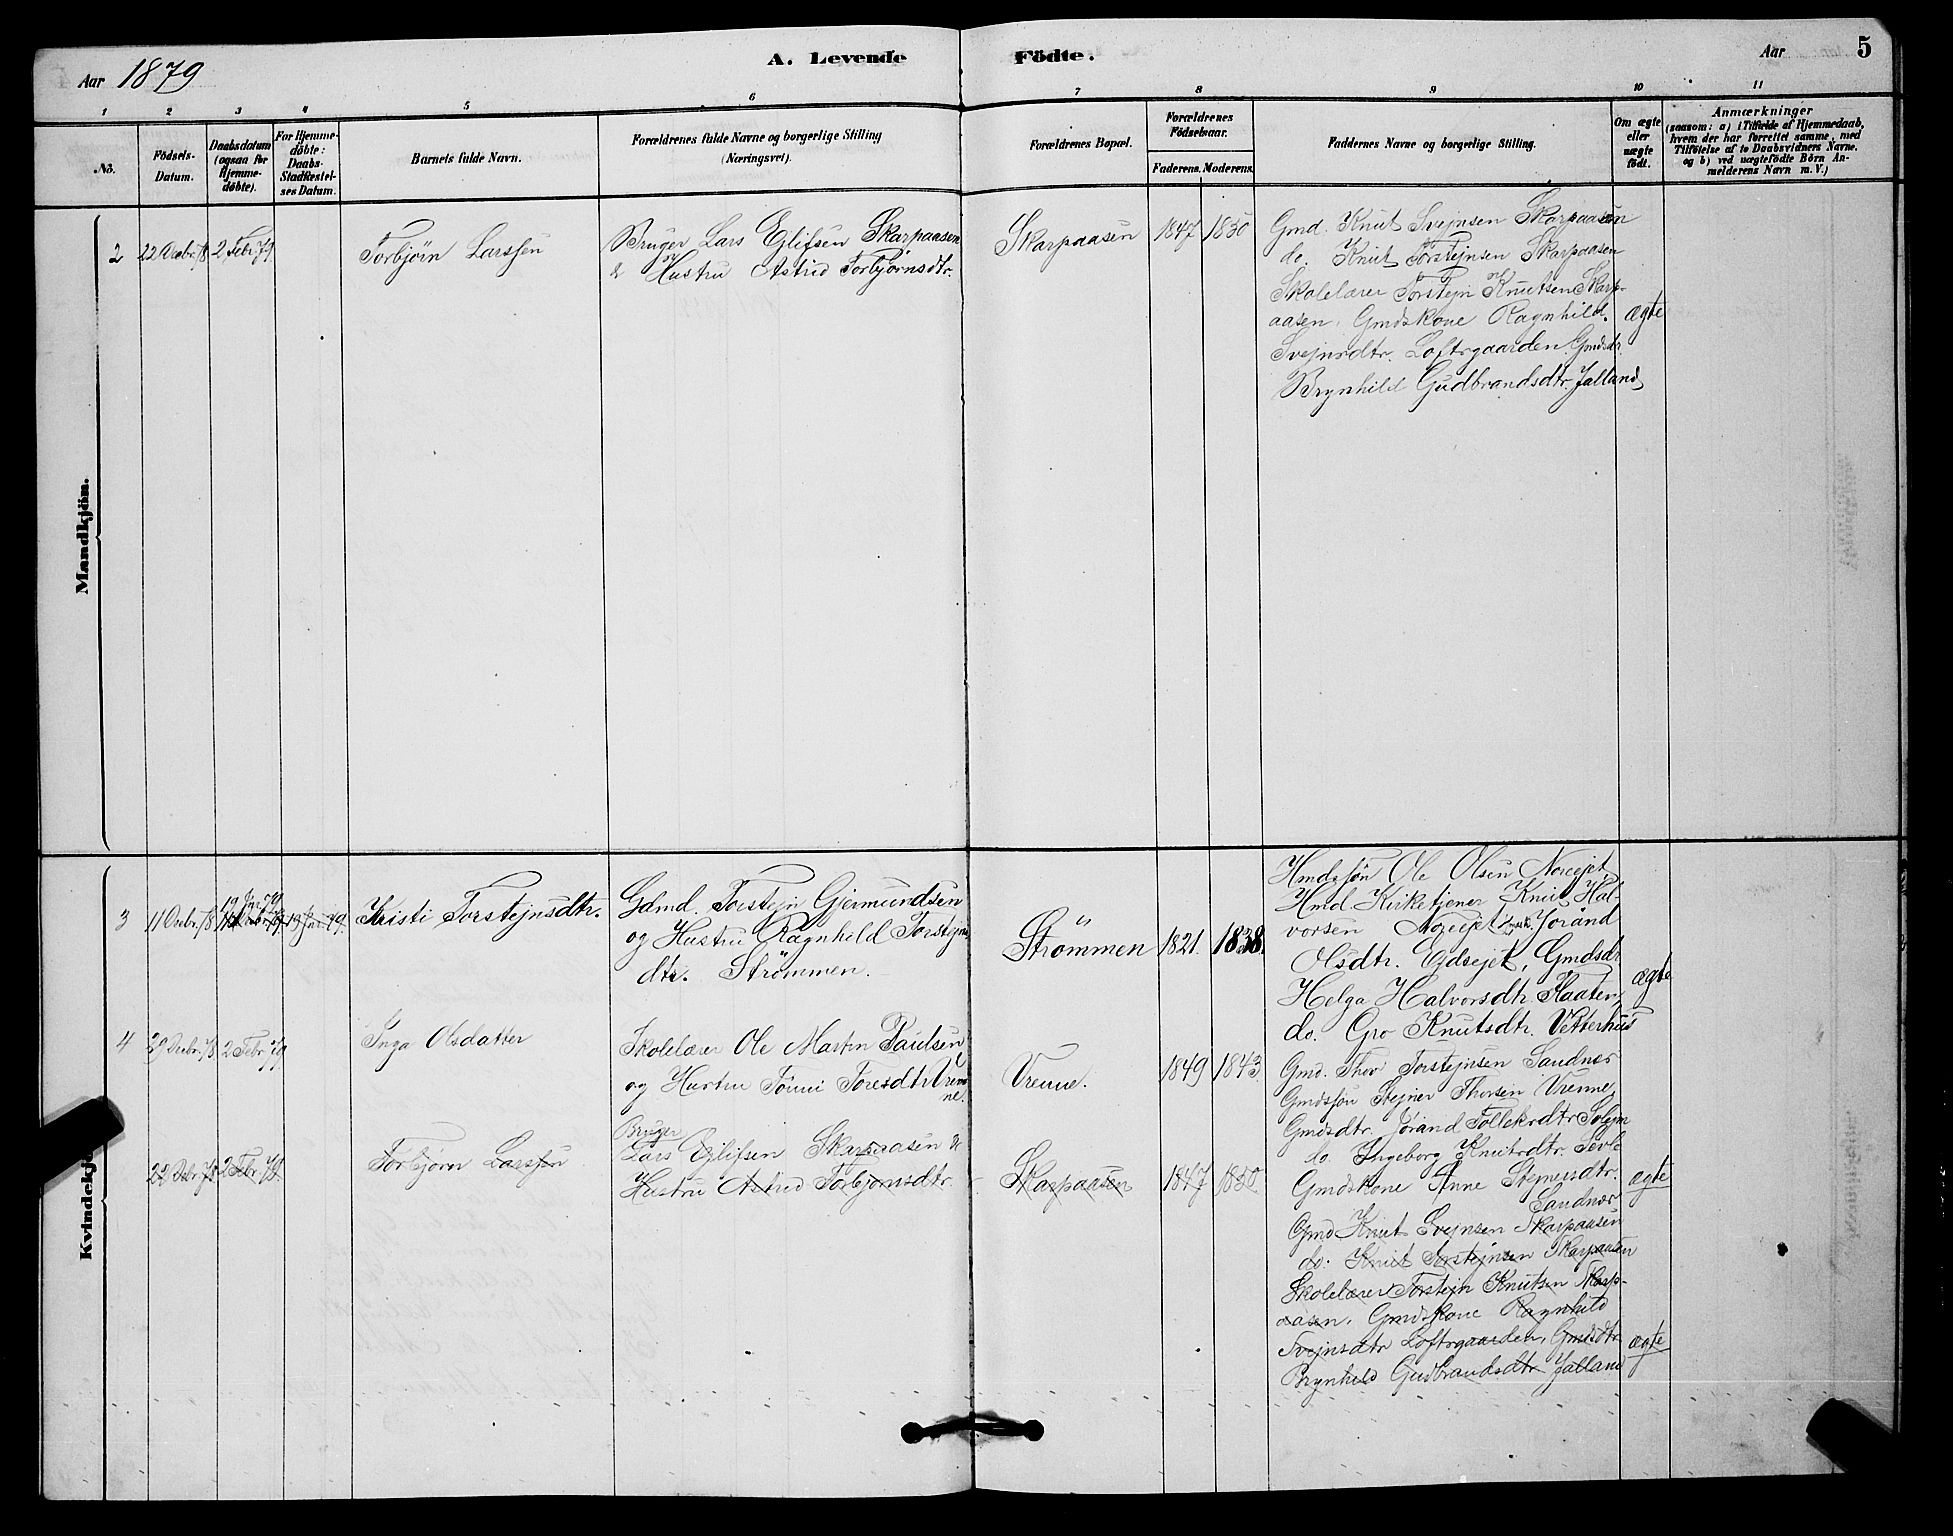 Aar 1879
A. Levende Födte.
Aar
5
1 2 3 4 5 6 7 8 9 10 11
No.
Födsels-
Datum.
Daabsdatum
(ogsaa for
Hjemme-
döbte).
For Hjemme-
döbte:
Daabs-
Stadfæstel-
ses Datum.
Barnets fulde Navn.
Forældrenes fulde Navne og borgerlige Stilling
(Næringsvei).
Forældrenes Bopæl.
Forældrenes
Födselsaar.
Faderens. Moderens.
Faddernes Navne og borgerlige Stilling.
Om ægte
eller
uægte
födt.
Anmærkninger
(saasom: a) i Tilfælde af Hjemmedaab,
hvem der har forrettet samme, med
Tilföielse af to Daabsvidners Navne,
og b) ved uægtefödte Börn An-
melderens Navn m. V.)
Mandkjön.
2 22 Decbr. 78 2 Febr. 79
Torbjørn Larssen
Bruger Lars Eilifsen Skarpaasen
& Hustru Astrid Torbjørnsdtr.
Skarpaasen
1847 1850
Gmd. Knut Svejnsen Skarpaasen
do. Knut Torstejnsen Skarpaasen
Skolelærer Torstejn Knutsen Skarp-
aasen, Gmdskone Ragnhild
Svejnsdtr. Loftsgaarden, Gmdsdtr.
Brynhild Gudbrandsdtr. Jalland
ægte
Kvindekjön
3 11 Decbr. 78 19 Jan. 79
Kristi Torstejnsdtr.
Gdmd. Torstejn Gjermundsen
og Hustru Ragnhild Torstejns
dtr. Strömmen.
Strömmen
1821. 1838.
Hmdssön Ole Olsen Norejet,
Hmd. Kirketjener Knut Hal-
vorsen Norejet, Jorand
Olsdtr. Ejdsejet, Gmdsdtr
Helga Halvorsdtr. Flaaten,
do. Gro Knutsdtr. Vetterhus
ægte
4 29 Decbr. 78 2 Febr. 79
Inga Olsdatter
Skolelærer Ole Martin Paulsen
og Hustru Tönni Toresdtr. Vren-
ne.
Vrenne.
1849 1843
Gmd. Thor Torstejnsen Sandnær
Gmdssön Stejner Thorsen Vrenne,
Gmdsdtr. Jorand Tolleksdtr. Solejm
do. Ingeborg Knutsdtr. Sevle
Gmdskone Anne Stejnersdtr.
Sandnær
ægte
22 Decbr. 78 2 Febr. 79.
Torbjørn Larssen
Bruger
Lars Eilifsen Skarpaasen &
Hustru Astrid Torbjørnsdtr.
Skarpaasen
1847 1850
Gmd Knut Svejnsen Skarpaasen
do. Knut Torstejnsen Skarpaasen
Skolelærer Torstejn Knutsen Skarp-
aasen, Gmdskone Ragnhild
Svejnsdtr Loftsgaarden, Gmdsdtr
Brynhild Gudbrandsdtr Jalland
ægte